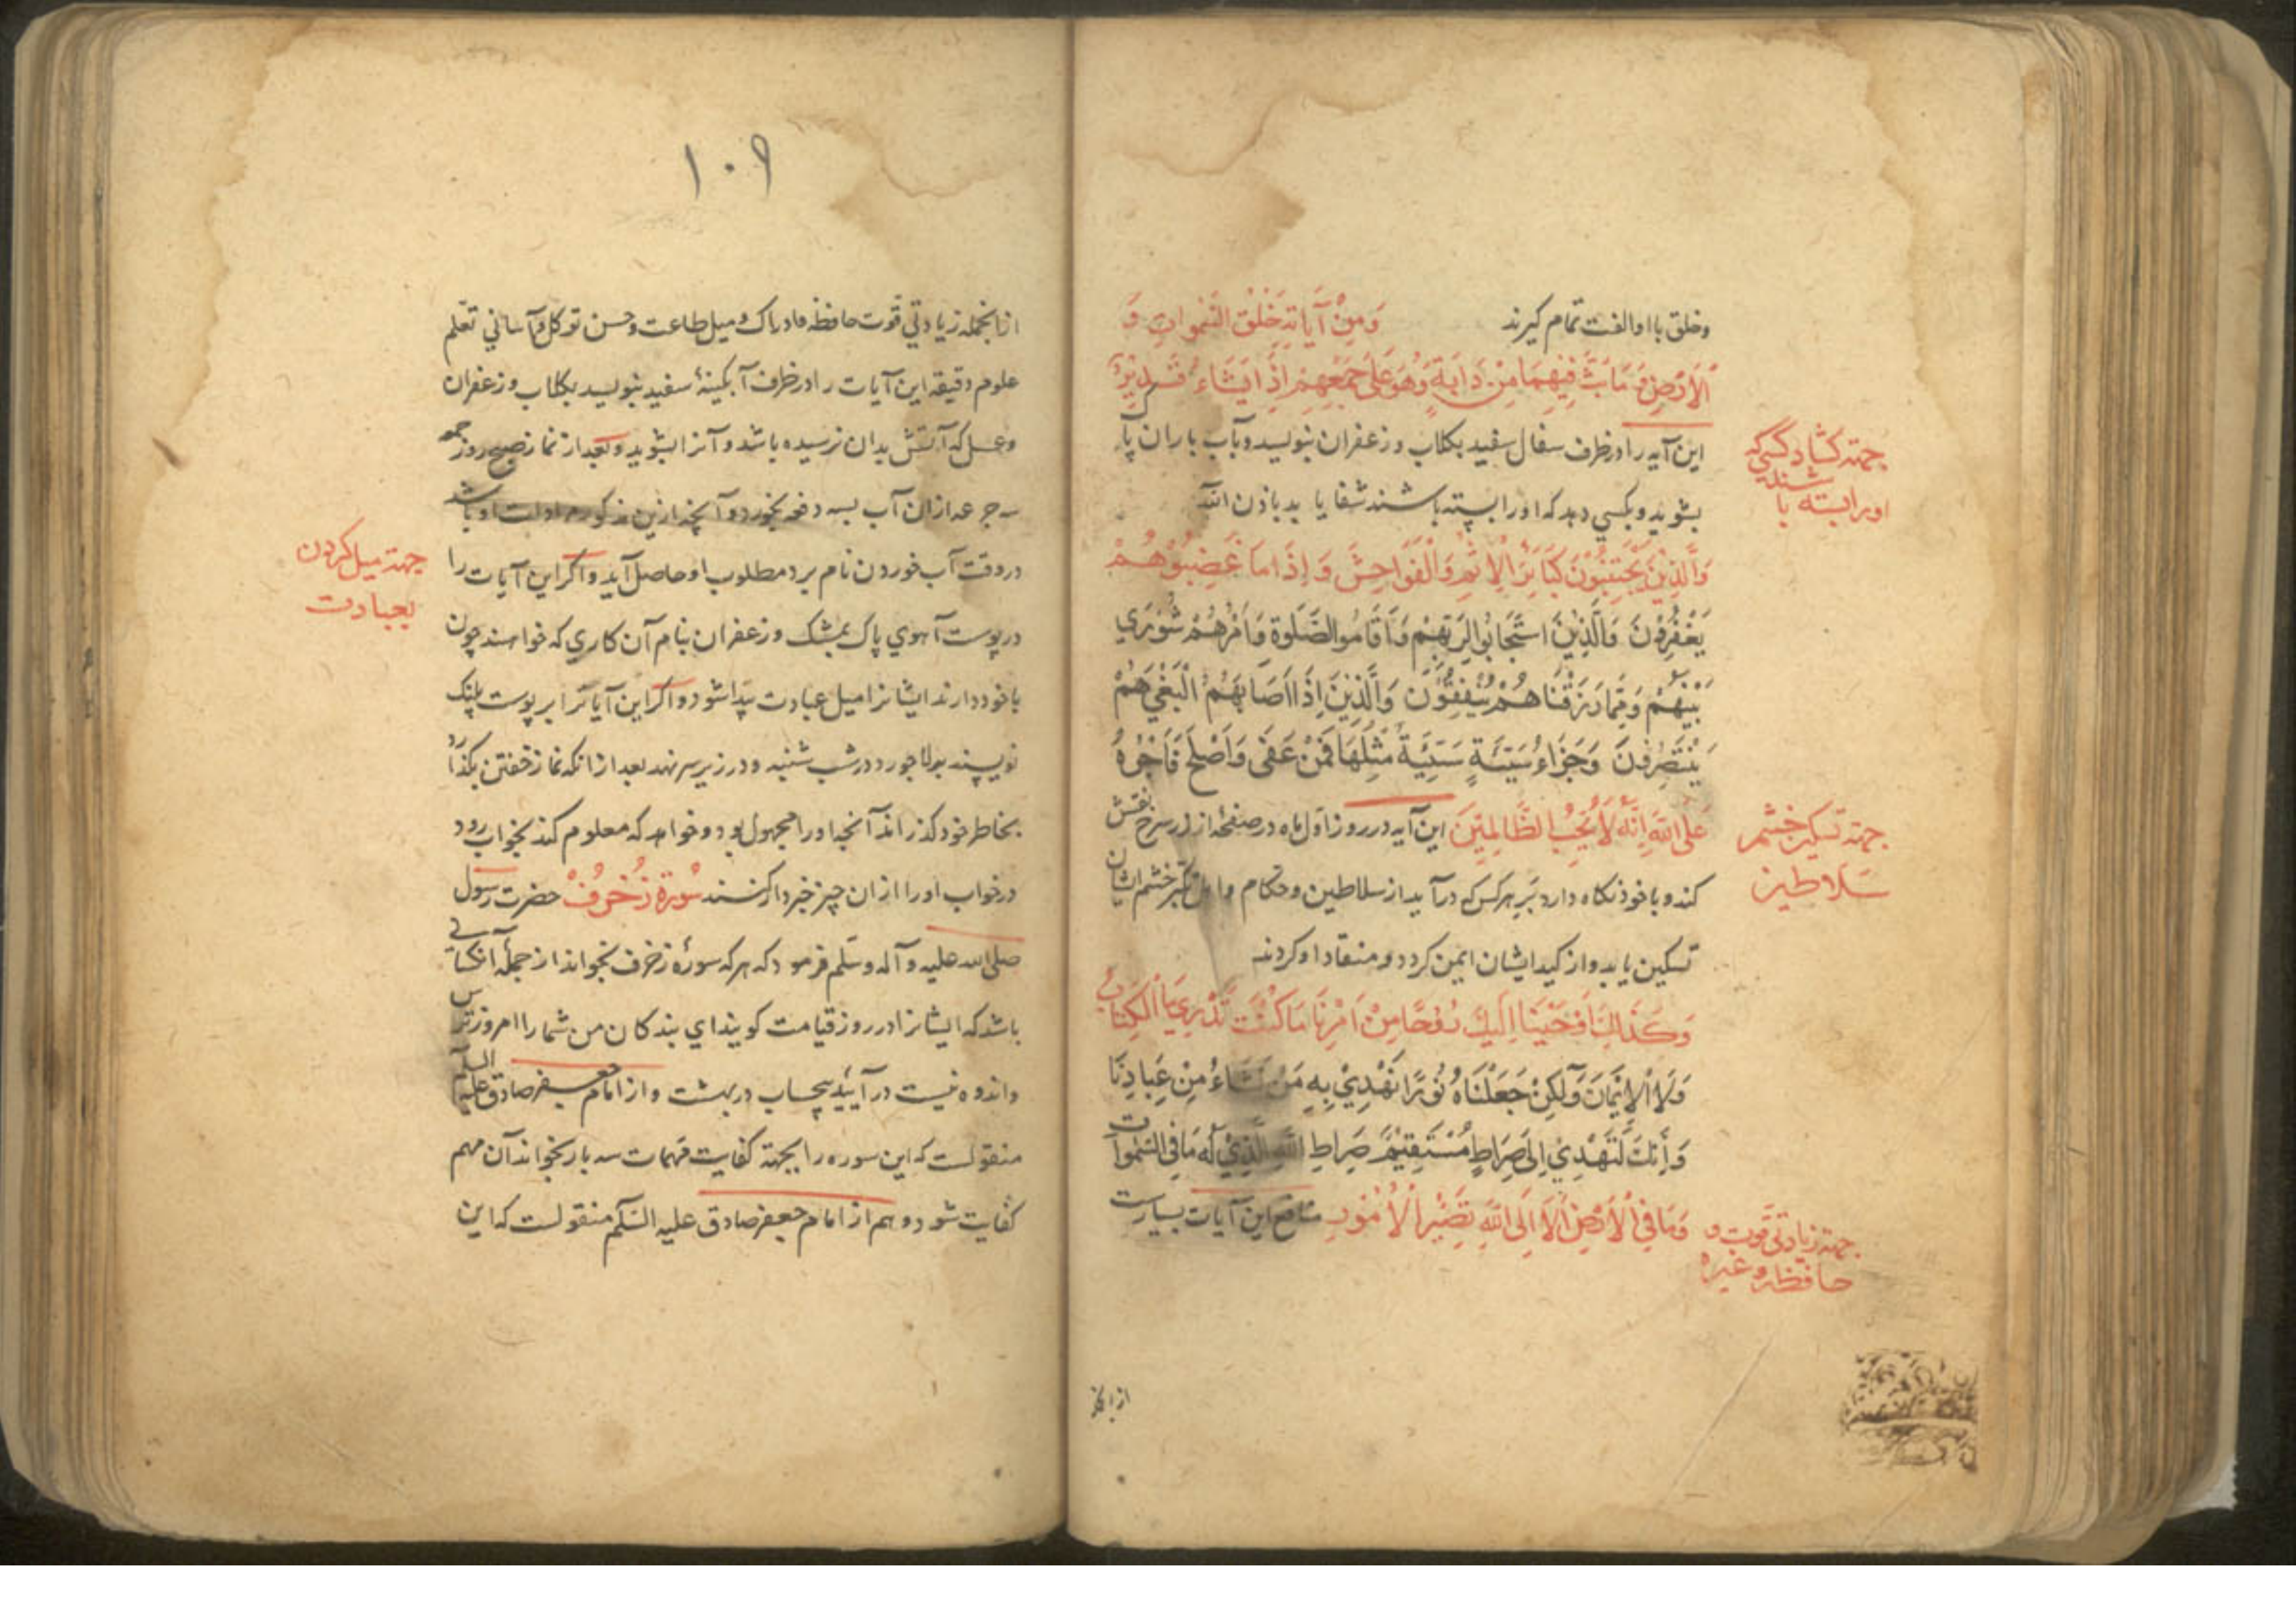 وخلق با او الفت تمام کیرند وَمِنْ آیَاتِهِ خَلْقُ السَّمٰوَاتِ وَ
الْاَرْضِ وَ مَا بَثَّ فِیْهِمَا مِنْ دَابَّةٍ وَهُوَ عَلَی جَمْعِهِمْ اِذَا یَشَاءُ قَدِیْرٌ
این آیه را در ظرف سفال سفید بکلاب و زعفران بنویسد و بآب باران پاک
بشوید و بکسی دهد که اورا بسته باشند شفا یابد باذن الله
جهته کشادکسی که
اورا بسته باشند
وَالَّذِیْنَ یَجْتَنِبُوْنَ کَبَائِرَ الْاِثْمِ وَالْفَوَاحِشَ وَ اِذَا مَا غَضِبُوْ هُمْ
یَغْفِرُوْنَ وَالَّذِیْنَ اسْتَجَابُوا لِرَبِّهِمْ وَ اَقَامُوا الصَّلٰوةَ وَ اَمْرُهُمْ شُوْرٰی
بَیْنَهُمْ وَ مِمَّا رَزَقْنَاهُمْ یُنْفِقُوْنَ وَالَّذِیْنَ اِذَا اَصَابَهُمُ الْبَغْیُ هُمْ
یَنْتَصِرُوْنَ وَ جَزَاءُ سَیِّئَةٍ سَیِّئَةٌ مِّثْلُهَا فَمَنْ عَفٰی وَ اَصْلَحَ فَاَجْرُهُ
عَلَی اللّٰهِ اِنَّهُ لَا یُحِبُّ الظَّالِمِیْنَ این آیه در روز اول ماه در صفحهٔ از زر سرخ نقش
کند و با خود نکاه دارد بر هر کس که درآید از سلاطین و حکام و اهل تکبر خشم ایشان
تسکین یابد و از کید ایشان ایمن کردد و منقاد او کردند
جهته تسکین خشم
سلاطین
وَ کَذٰلِکَ اَوْحَیْنَا اِلَیْکَ رُوْحًا مِنْ اَمْرِنَا مَا کُنْتَ تَدْرِیْ مَا الْکِتَابُ
وَلَا الْاِیْمَانُ وَلٰکِنْ جَعَلْنَاهُ نُوْرًا نَهْدِیْ بِهِ مَنْ نَشَاءُ مِنْ عِبَادِنَا
وَ اِنَّکَ لَتَهْدِیْ اِلَی صِرَاطٍ مُسْتَقِیْمٍ صِرَاطِ اللّٰهِ الَّذِیْ لَهُ مَا فِی السَّمٰوَاتِ
وَ مَا فِی الْاَرْضِ اَلَا اِلَی اللّٰهِ تَصِیْرُ الْاُمُوْرُ منافع این آیات بسیارست
جهته زیادتی قوت و
حافظه و غیره
ازانجمله
۱۰۹
ازانجمله زیادتی قوت حافظه و ادراک و میل طاعت و حسن توکل و آسانی تعلم
علوم دقیقه این آیات را در ظرف آبکینهٔ سفید بنویسد بکلاب و زعفران
و عسل که آتش بدان نرسیده باشد و آنرا بشوید و بعد از نماز صبح روز جمعه
سه جرعه از ان آب بسه دفعه بخورد و آنچه ازین مذکور مرادات او باشد
در وقت آب خوردن نام برد مطلوب او حاصل آید و اکر این آیات را
در پوست آهوی پاک بمشک و زعفران بنام آن کاری که خواهند چون
با خود دارند ایشانرا میل عبادت پیدا شود و اکر این آیات را بر پوست پلنک
جهته میل کردن
بعبادت
نویسند در شب شنبه و در زیر سر نهند بعد از انکه نماز خفتن بکذارد
بخاطر خود کذراند آنچه اورا مجهول بود و خواهد که معلوم کند بخواب رود
در خواب اورا از ان چیز خبردار کنند سُوْرَة زُخْرُفْ حضرت رسول
صلی الله علیه و آله و سلم فرمود که هر که سورهٔ زخرف بخواند از جملهٔ آنکسانی
باشد که ایشانرا در روز قیامت کویند ای بندکان من شما را امروز ترس
و اندوه نیست در آیید بیحساب در بهشت و از امام جعفر صادق علیه السلم
منقولست که این سوره را بجهته کفایت مهمات سه بار بخواند آن مهم
کفایت شود و هم از امام جعفر صادق علیه السلم منقولست که این